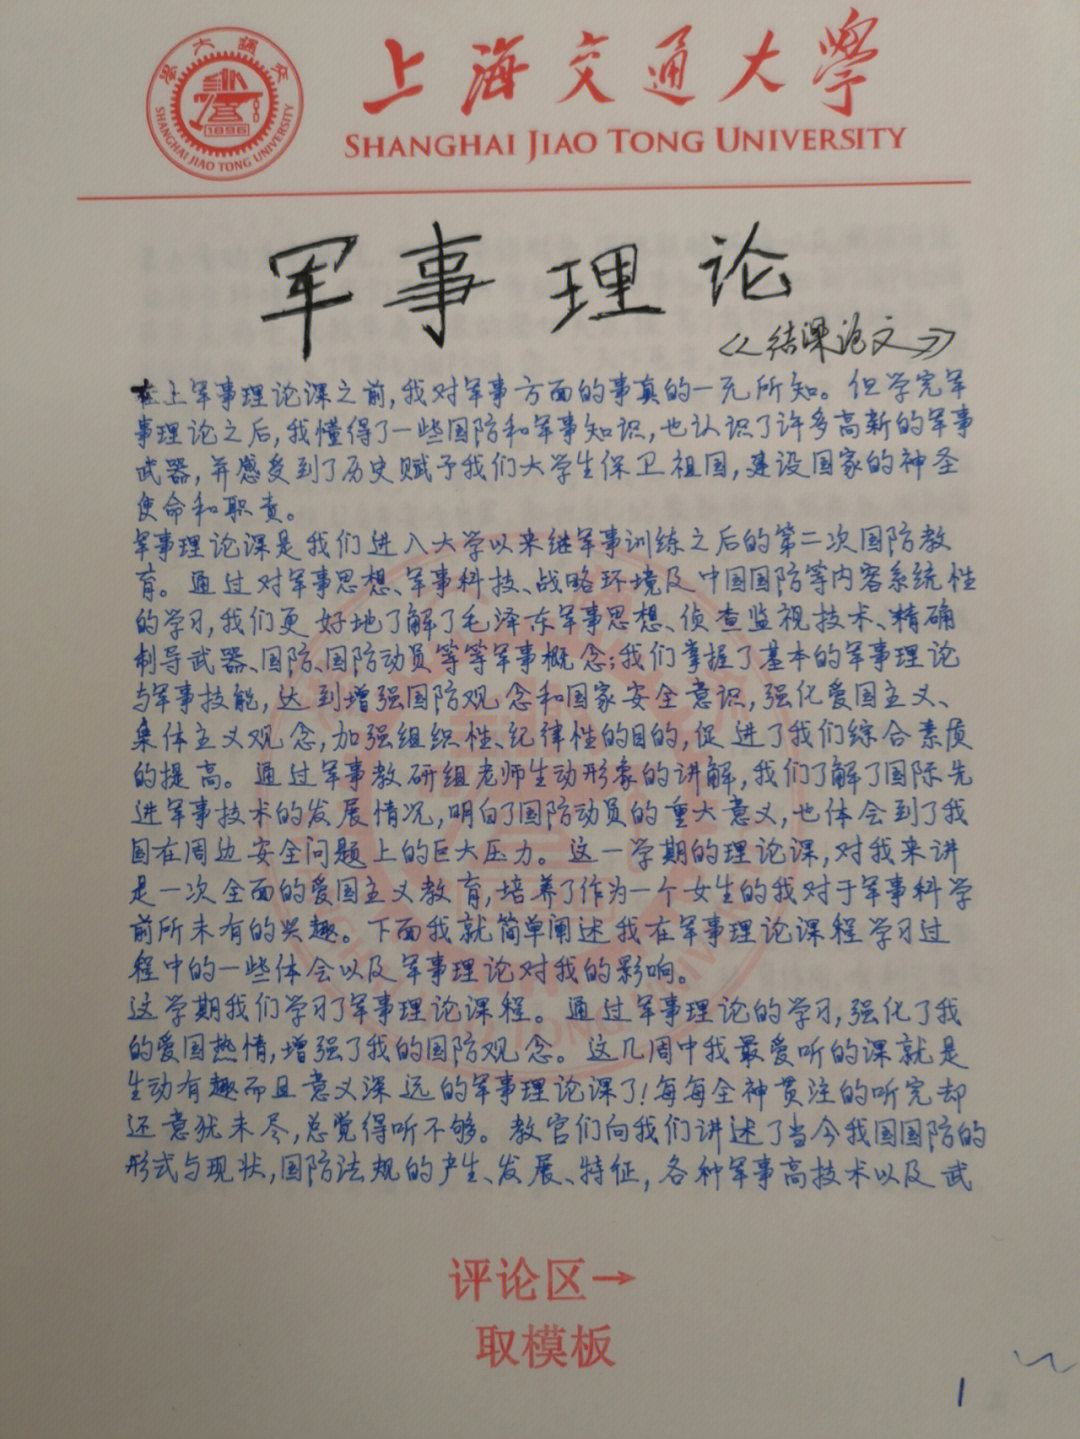 上海交通大學
SHANGHAI JIAO TONG UNIVERSITY
交通大學
1896
SHANGHAI JIAO TONG UNIVERSITY
军事理论
《结课论文》
在上军事理论课之前,我对军事方面的事真的一无所知。但学完军
事理论之后,我懂得了一些国防和军事知识,也认识了许多高新的军事
武器,并感受到了历史赋予我们大学生保卫祖国,建设国家的神圣
使命和职责。
军事理论课是我们进入大学以来继军事训练之后的第二次国防教
育。通过对军事思想、军事科技、战略环境及中国国防等内容系统性
的学习,我们更好地了解了毛泽东军事思想、侦查监视技术、精确
制导武器、国防、国防动员等等军事概念;我们掌握了基本的军事理论
与军事技能,达到增强国防观念和国家安全意识,强化爱国主义、
集体主义观念,加强组织性、纪律性的目的,促进了我们综合素质
的提高。通过军事教研组老师生动形象的讲解,我们了解了国际先
进军事技术的发展情况,明白了国防动员的重大意义,也体会到了我
国在周边安全问题上的巨大压力。这一学期的理论课,对我来讲
是一次全面的爱国主义教育,培养了作为一个女生的我对于军事科学
前所未有的兴趣。下面我就简单阐述我在军事理论课程学习过
程中的一些体会以及军事理论对我的影响。
这学期我们学习了军事理论课程。通过军事理论的学习,强化了我
的爱国热情,增强了我的国防观念。这几周中我最爱听的课就是
生动有趣而且意义深远的军事理论课了!每每全神贯注的听完却
还意犹未尽,总觉得听不够。教官们向我们讲述了当今我国国防的
形式与现状,国防法规的产生、发展、特征,各种军事高技术以及武
评论区→
取模板
1